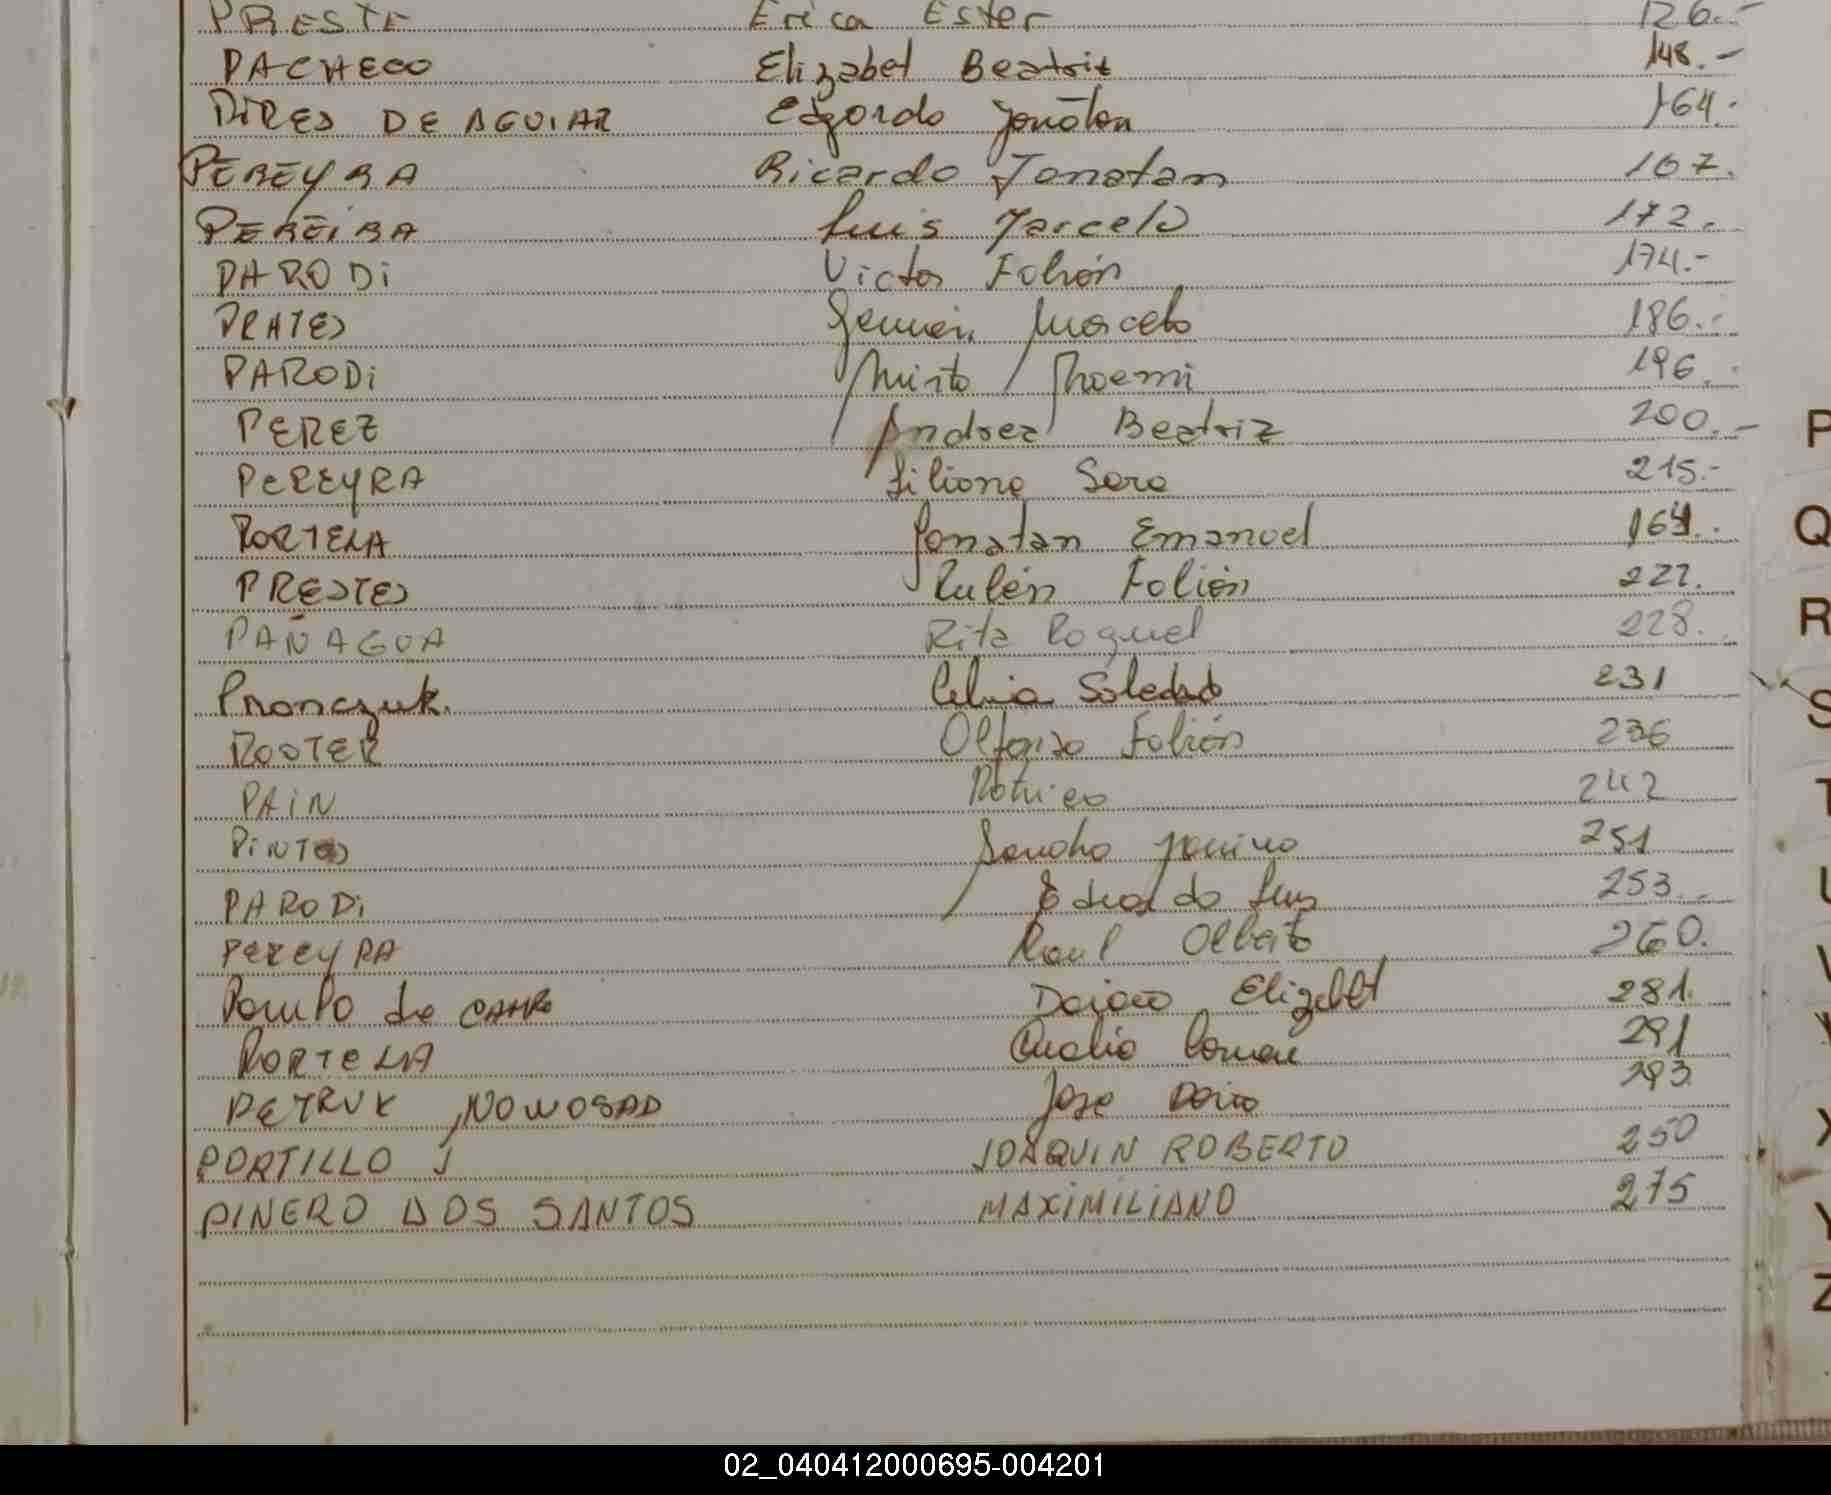 PRESTE Erica Ester 126.-
PACHECO Elizabet Beatriz 148.-
PIRES DE AGUIAR Edgardo Jonatan 164.-
PEREYRA Ricardo Jonatan 167.
PEREIRA Luis Marcelo 172.-
PARODI Victor Fabián 174.-
PRATES Germán Marcelo 186.-
PARODI Mirta Noemi 196.-
PEREZ Andrea Beatriz 200.-
PEREYRA Liliana Sara 215.-
PORTELA Jonatan Emanuel
PRESTES Rubén Fabián 222.
PAÑAGUA Rita Raquel 228.
Pronczuk. Celina Soledad 231
POSTER Alfonso Fabián 236
PAIN 242
PINTOS Sandra Janina 251
PARODI Eduardo Luis 253.-
PEREYRA Raul Alberto 260.
de CASTRO Elizabet 281.
PORTELA 291
PETRUK NOWOSAD Jose Dario 293
PORTILLO J JOAQUIN ROBERTO 250
PINERO DOS SANTOS MAXIMILIANO 275
P
Q
R
S
T
U
V
Y
X
Y
Z
02_040412000695-004201